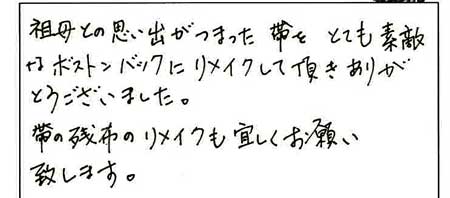 祖母との思い出がつまった 帯を とても素敵
なボストンバックにリメイクして頂きありが
とうございました。
帯の残布のリメイクも宜しくお願い
致します。